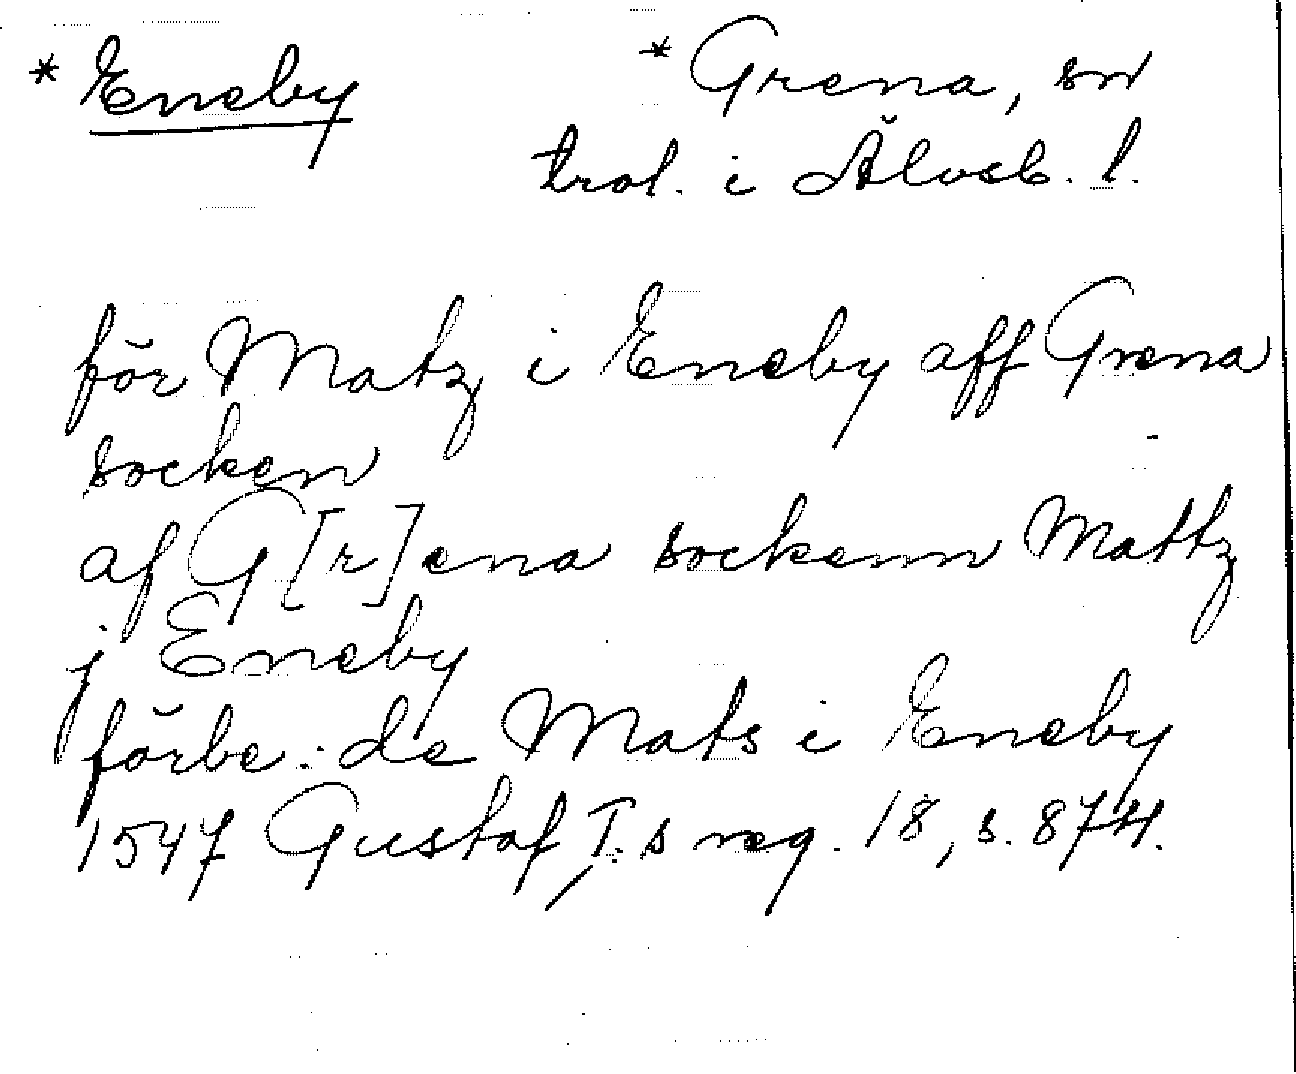 * Eneby
* Grena, sn
trol. i Älvsb. l.
för Matz i Eneby aff Grena
socken
af G[r]ena sockenn Mattz
j Eneby
förbe:de Mats i Eneby
1547 Gustaf I:s reg. 18, s. 874.